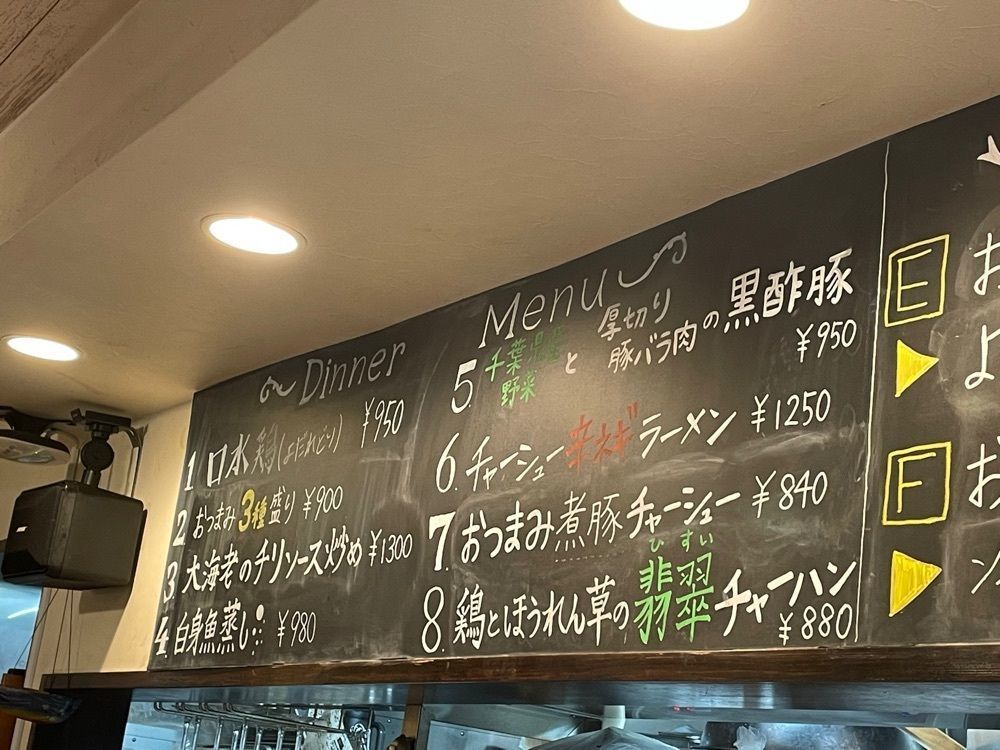 Dinner Menu
1 口水鶏(よだれどり) ¥950
2 おつまみ3種盛り ¥900
3 大海老のチリソース炒め ¥1300
4. 白身魚蒸し ¥980
5. 千葉県産野菜と厚切り豚バラ肉の黒酢豚
¥950
6. チャーシュー辛ネギラーメン ¥1250
7 おつまみ煮豚チャーシュー ¥840
ひすい
8. 鶏とほうれん草の翡翠チャーハン
¥880
E お
よ
F お